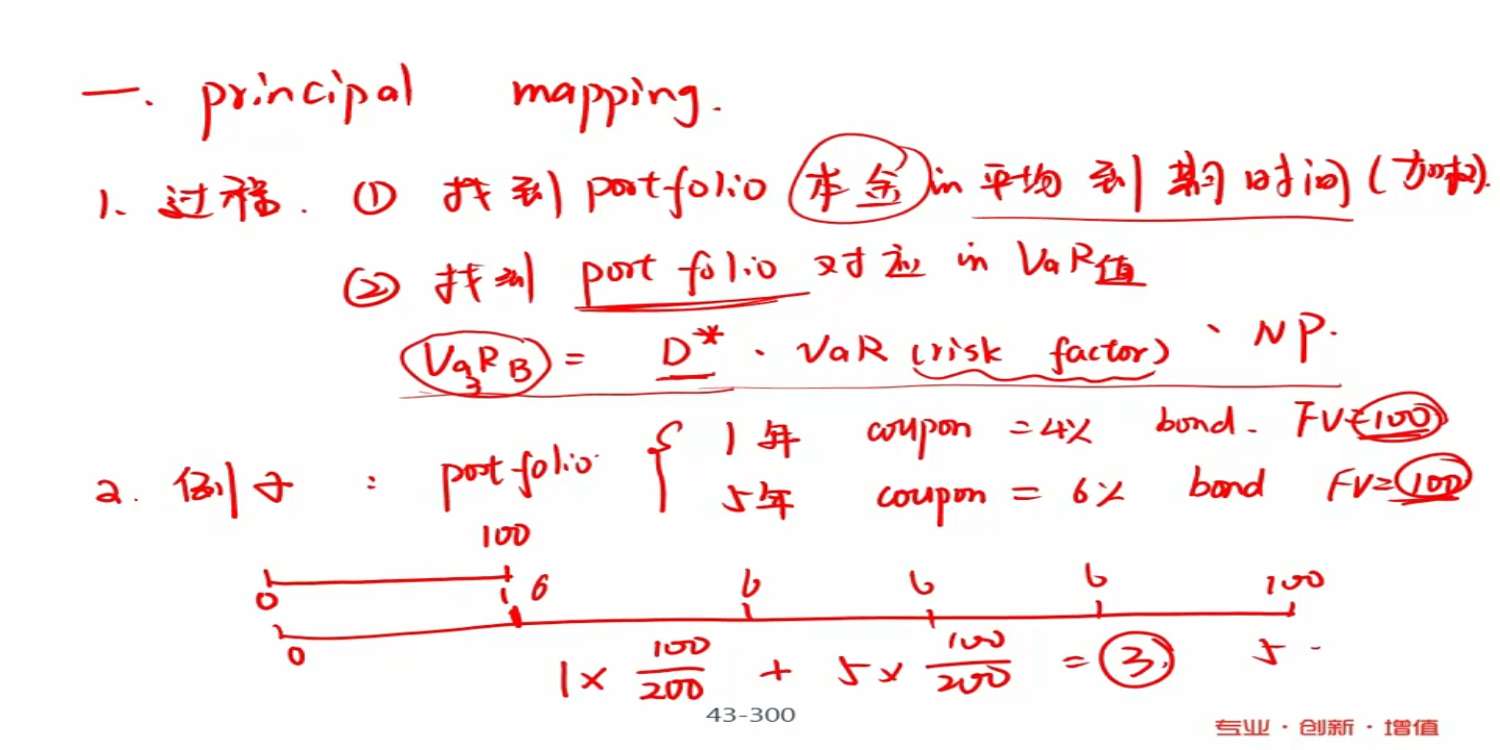 一. principal mapping.
1、过程. ① 找到 portfolio 本金 in 平均到期时间 (加权).
② 找到 portfolio 对应 in VaR值
VaR B = D* · VaR (risk factor) · NP.
3
2. 例子 : portfolio { 1年 coupon = 4% bond. FV=100
5年 coupon = 6% bond FV=100
100
0 1 6 6 6 6 100
0 5
1× 100/200 + 5× 100/200 = 3.
43-300
专业·创新·增值